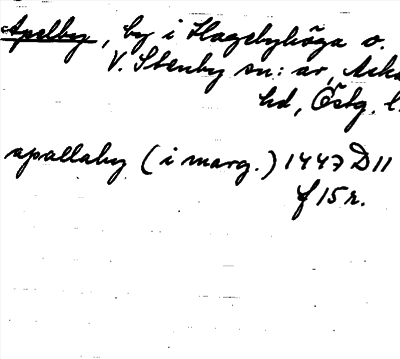 Apelby, by i Hagebyhöga o.
V. Stenby sn:ar, Aska
hd, Östg. l.
apallaby (i marg.) 1447 D 11
f 15 r.